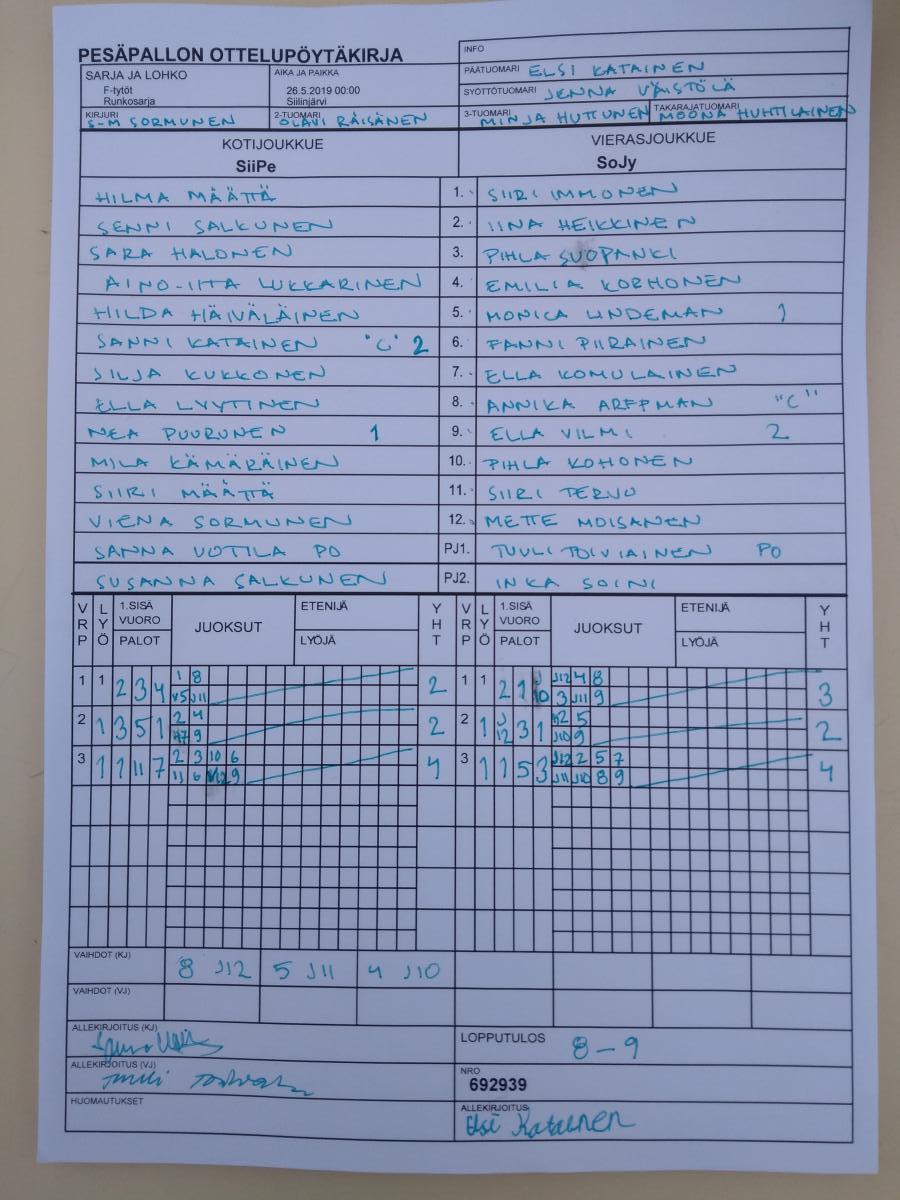 PESÄPALLON OTTELUPÖYTÄKIRJA
INFO
SARJA JA LOHKO
F-tytöt
Runkosarja
AIKA JA PAIKKA
26.5.2019 00:00
Siilinjärvi
PÄÄTUOMARI ELSI KATAINEN
SYÖTTÖTUOMARI JENNA VÄISTÖLÄ
KIRJURI S-M SORMUNEN
2-TUOMARI OLAVI RÄISÄNEN
3-TUOMARI MINJA HUTTUNEN
TAKARAJATUOMARI MOONA HUHTILAINEN
KOTIJOUKKUE VIERASJOUKKUE
SiiPe SoJy
HILMA MÄÄTTÄ 1. SIIRI IMMONEN
SENNI SALKUNEN 2. IINA HEIKKINEN
SARA HALONEN 3. PIHLA SUOPANKI
AINO-IITA LUKKARINEN 4. EMILIA KORHONEN
HILDA HÄIVÄLÄINEN 5. MONICA LINDEMAN 1
SANNI KATAINEN "C" 2 6. FANNI PIIRAINEN
SILJA KUKKONEN 7. ELLA KOMULAINEN
ELLA LYYTINEN 8. ANNIKA ARFFMAN "C"
NEA PUURUNEN 1 9. ELLA VILMI 2
MILA KÄMÄRÄINEN 10. PIHLA KOHONEN
SIIRI MÄÄTTÄ 11. SIIRI TERVO
VIENA SORMUNEN 12. METTE MOISANEN
SANNA UOTILA PO PJ1. TUULI TOIVIAINEN PO
SUSANNA SALKUNEN PJ2. INKA SOINI
VRP LYÖ 1.SISÄ VUORO PALOT JUOKSUT ETENIJÄ LYÖJÄ YHT VRP LYÖ 1.SISÄ VUORO PALOT JUOKSUT ETENIJÄ LYÖJÄ YHT
1 1 2 3 4 1 8 2 1 1 2 1 J12 4 8 3
5 J11 10 3 J11 9
2 1 3 5 1 2 4 2 2 1 J12 3 1 2 5 2
9 J10 9
3 1 1 11 7 2 3 10 6 4 3 1 1 5 3 J12 2 5 7 4
11 6 9 J11 J10 8 9
VAIHDOT (KJ) 8 J12 5 J11 4 J10
VAIHDOT (VJ)
ALLEKIRJOITUS (KJ)
LOPPUTULOS 8 - 9
ALLEKIRJOITUS (VJ)
NRO
692939
HUOMAUTUKSET
ALLEKIRJOITUS
Elsi Katainen